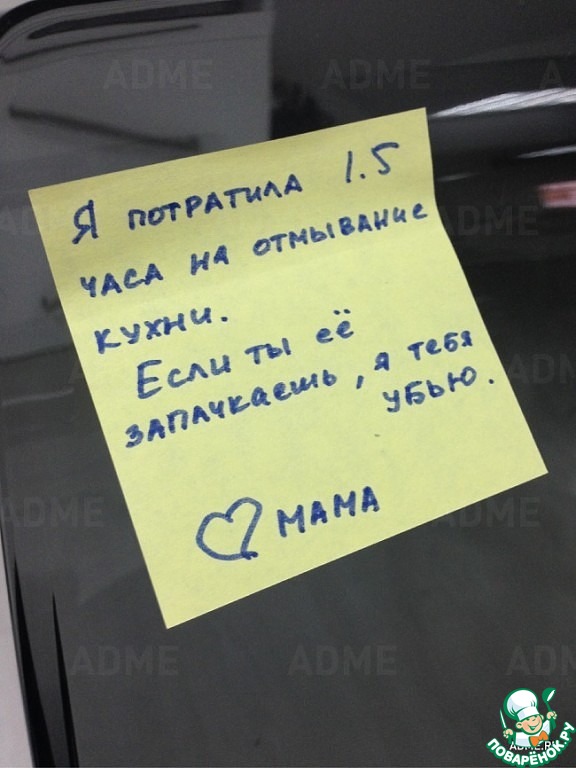 Я ПОТРАТИЛА 1.5
ЧАСА НА ОТМЫВАНИЕ
КУХНИ.
ЕСЛИ ТЫ ЕЁ
ЗАПАЧКАЕШЬ, Я ТЕБЯ
УБЬЮ.
♡ МАМА
ADME
ADME
ADME
ADME
ADME
ADME
ADME
ADME.RU
ПОВАРЁНОК.РУ